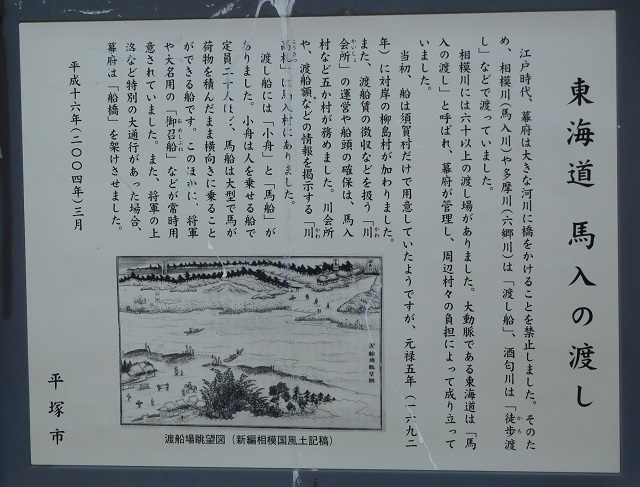 東海道 馬入の渡し
江戸時代、幕府は大きな河川に橋をかけることを禁止しました。そのた
め、相模川(馬入川)や多摩川(六郷川)は「渡し船」、酒匂川は「徒歩渡
し」などで渡っていました。
相模川には六十以上の渡し場がありました。大動脈である東海道は「馬
入の渡し」と呼ばれ、幕府が管理し、周辺村々の負担によって成り立って
いました。
当初、船は須賀村だけで用意していたようですが、元禄五年(一六九二
年)に対岸の柳島村が加わりました。
また、渡船賃の徴収などを扱う「川
会所」の運営や船頭の確保は、馬入
村など五か村が務めました。川会所
や、渡船額などの情報を掲示する「川
高札」は馬入村にありました。
渡し船には「小舟」と「馬船」が
ありました。小舟は人を乗せる船で
定員二十人ほど、馬船は大型で馬が
荷物を積んだまま横向きに乗ること
ができる船です。このほかに、将軍
や大名用の「御召船」などが常時用
意されていました。また、将軍の上
洛など特別の大通行があった場合、
幕府は「船橋」を架けさせました。
平成十六年(二〇〇四年)三月
渡船場眺望図
渡船場眺望図(新編相模国風土記稿)
平塚市